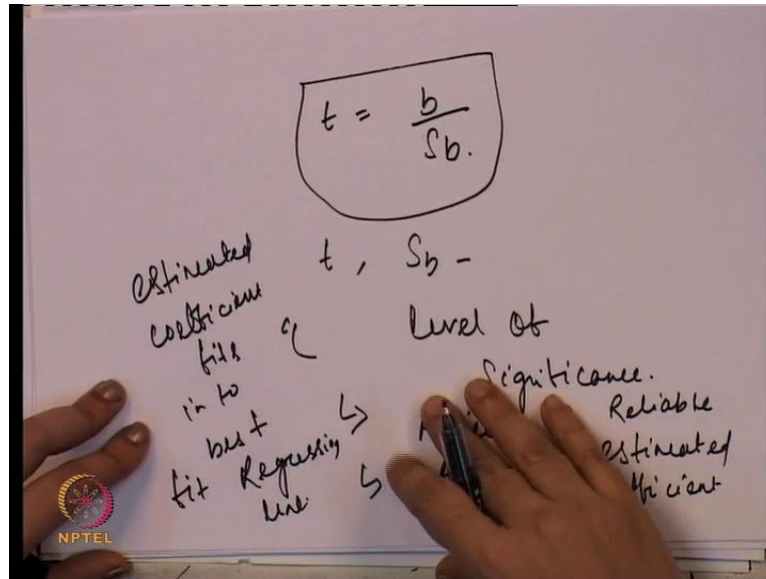 t = b
Sb.
t , Sb -
estimated
coefficient
fits
in to
best
fit Regression
line.
Level of
significance.
Reliable
estimated
NPTEL